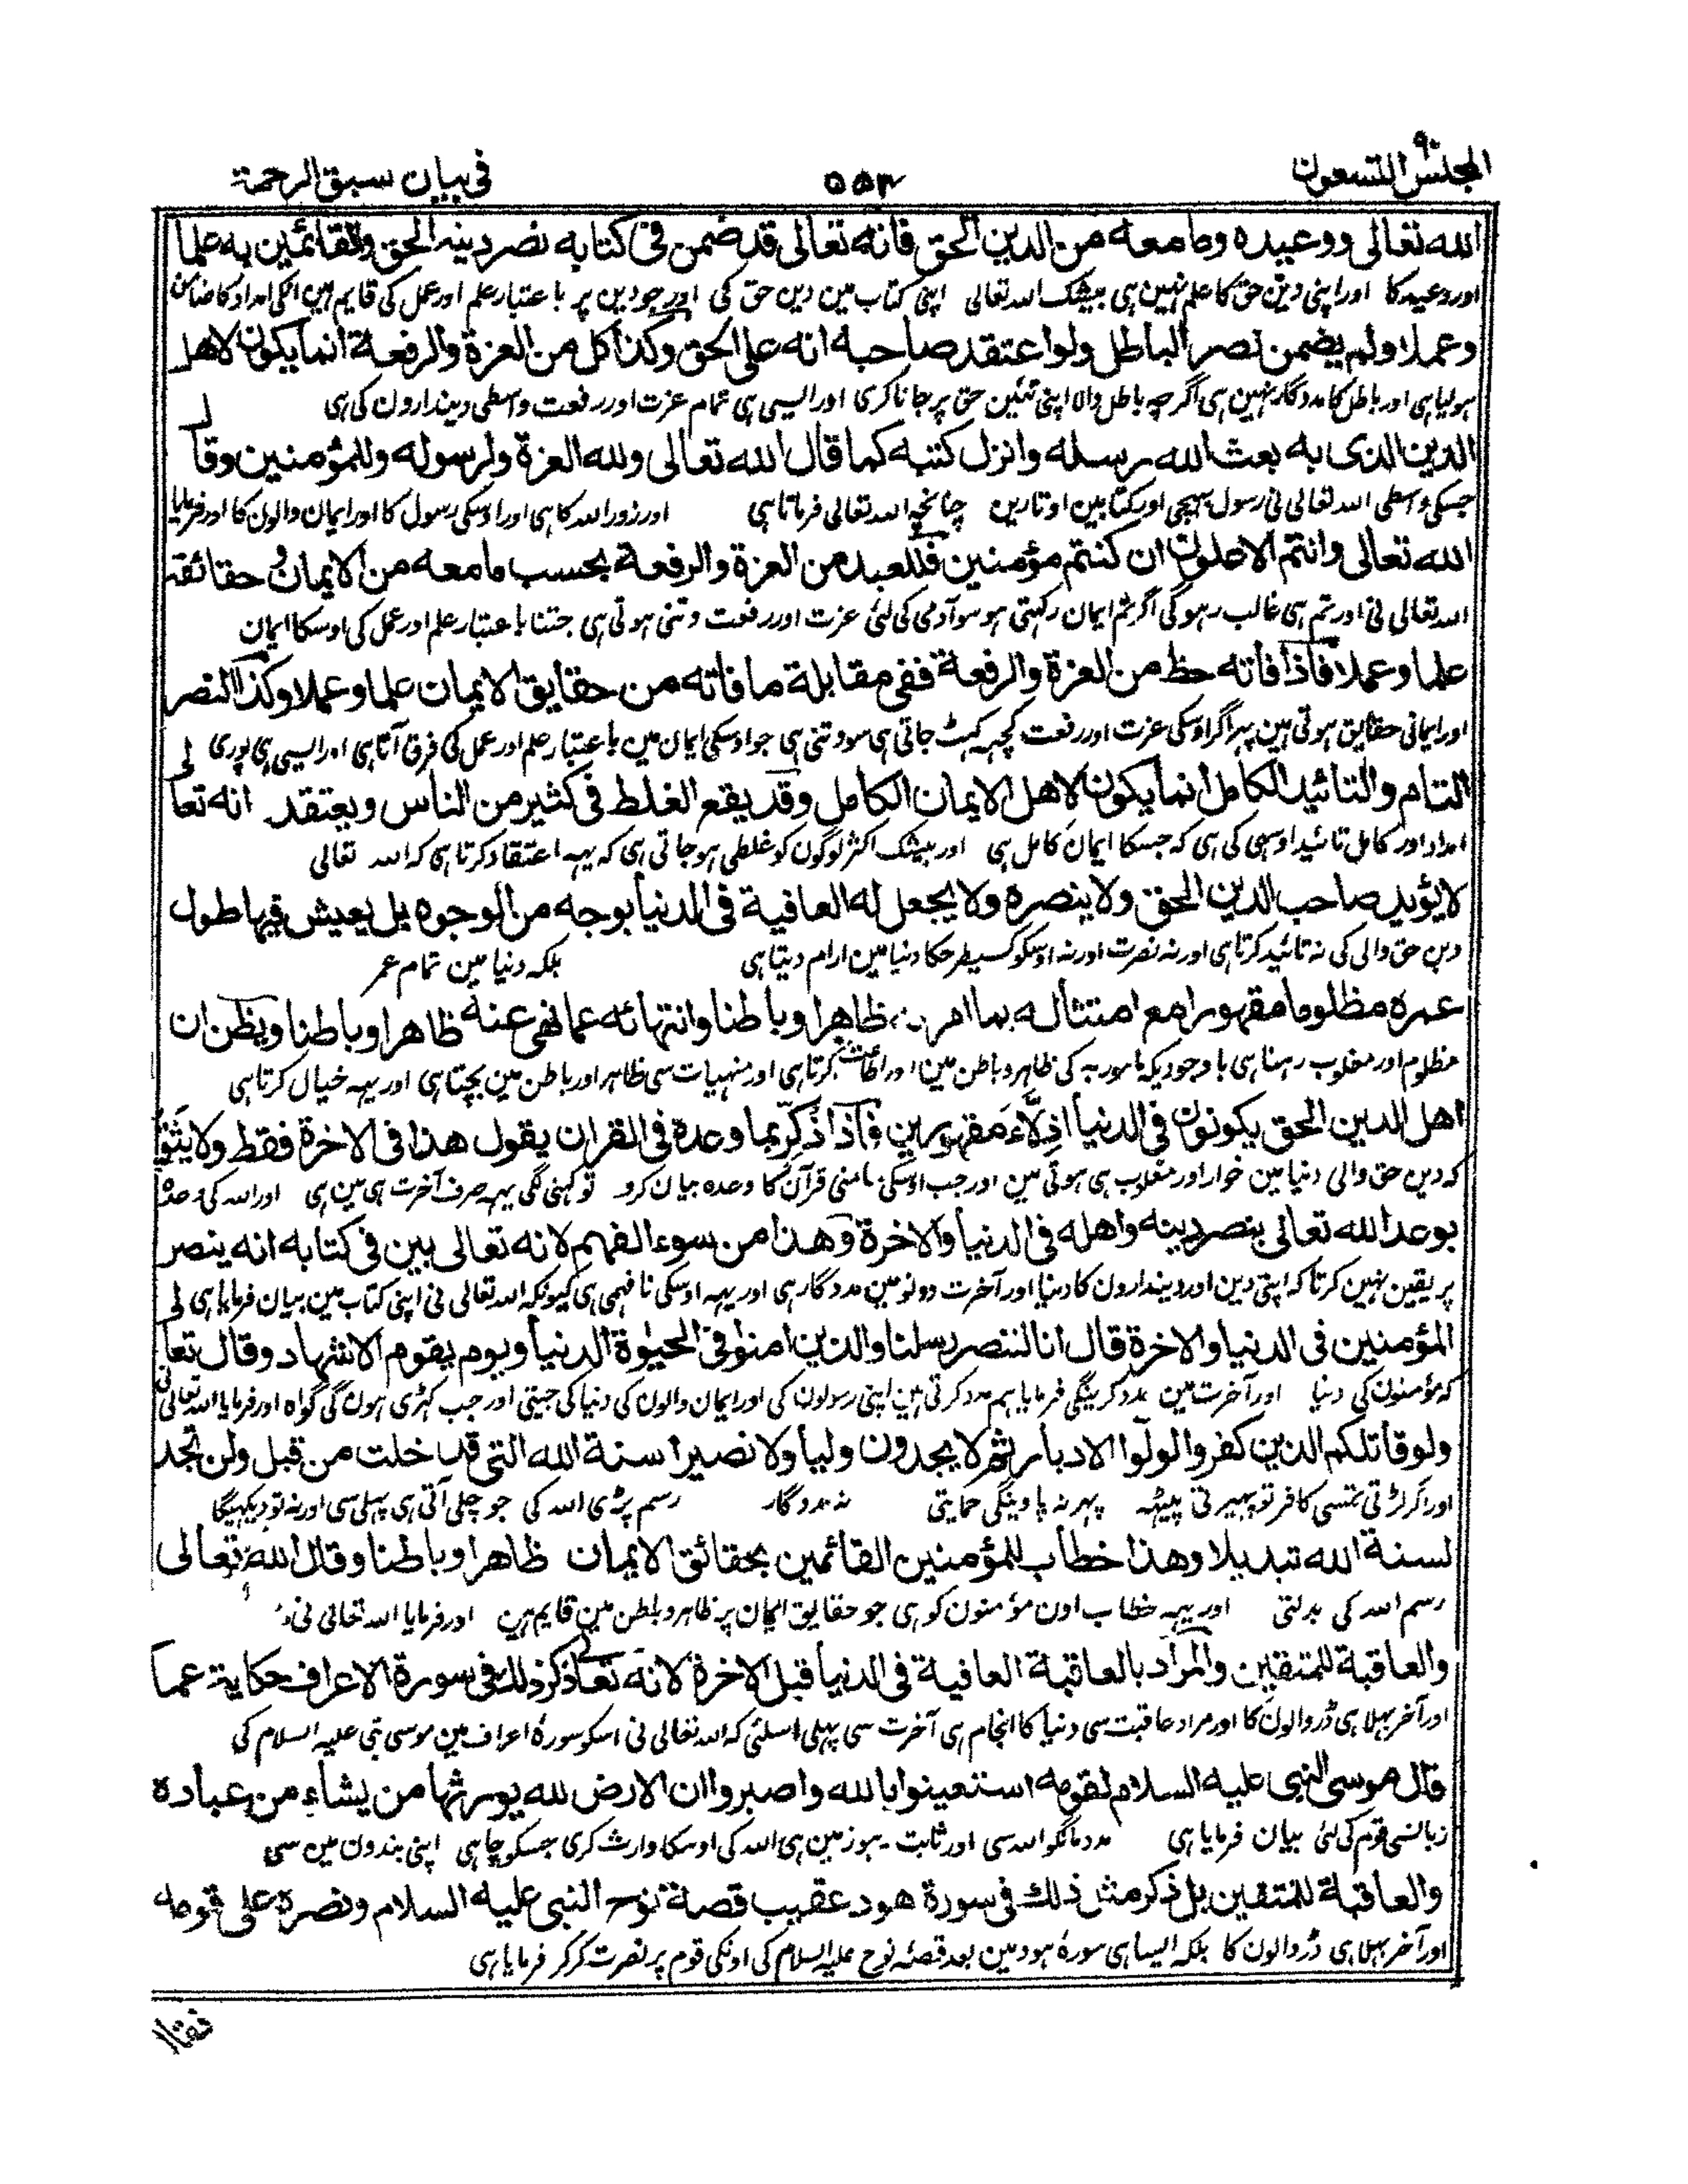 المجلس التسعون ٩٠
٥٥٣
في بيان سبق الرحمة
الله تعالى ووعيده وما معه من الدين الحق فانه تعالى قد ضمن في كتابه نصر دينه الحق والقائمين به علما
اور وعید کا اور اپنی دین حق کا علم نہین ہی بیشک اللہ تعالی اپنی کتاب مین دین حق کی اور جو دین پر باعتبار علم اور عمل کی قایم ہین انکی امداد کا ضامن
وعملا ولم يضمن نصر الباطل ولو اعتقد صاحبه انه على الحق وكذا كل من العزة والرفعة انما يكون لاهل
ہولیا ہی اور باطل کا مددگار نہین ہی اگرچہ باطل والا اپنی تئین حق پر جانا کری اور ایسی ہی تمام عزت اور رفعت واسطی دیندارون کی ہی
الدين الذى به بعث الله رسله وانزل كتبه كما قال الله تعالى ولله العزة ولرسوله وللمؤمنين وقال
جسکی واسطی اللہ تعالی نی رسول بہیجی اور کتابین اوتارین چنانچہ اللہ تعالی فرماتا ہی اور زور اللہ کا ہی اور اوسکی رسول کا اور ایمان والون کا اور فرمایا
الله تعالى وانتم الاعلون ان كنتم مؤمنين فللعبد من العزة والرفعة بحسب ما معه من الايمان وحقائقه
اللہ تعالی نی اور تم ہی غالب رہوگی اگر تم ایمان رکہتی ہو سو آدمی کی لئی عزت اور رفعت وتنی ہوتی ہی جتنا باعتبار علم اور عمل کی اوسکا ایمان
علما وعملا فاذا فاته حظ من العزة والرفعة ففى مقابلة ما فاته من حقايق الايمان علما وعملا وكذا النصر
اور ایمانی حقایق ہوتی ہین پہر اگر اوسکی عزت اور رفعت کچہہ گہٹ جاتی ہی سو وتنی ہی جو اوسکی ایمان مین باعتبار علم اور عمل کی فرق آتا ہی اور ایسی ہی پوری
التام والتائيد الكامل انما يكون لاهل الايمان الكامل وقد يقع الغلط فى كثير من الناس ويعتقد انه تعالى
امداد اور کامل تائید اوسہی کی ہی کہ جسکا ایمان کامل ہی اور بیشک اکثر لوگون کو غلطی ہوجاتی ہی کہ یہہ اعتقاد کرتا ہی کہ اللہ تعالی
لا يؤيد صاحب الدين الحق ولا ينصره ولا يجعل له العافية فى الدنيا بوجه من الوجوه بل يعيش فيها طول
دین حق والی کی نہ تائید کرتا ہی اور نہ نصرت اور نہ اوسکو کسیطرحکا دنیا مین ارام دیتا ہی بلکہ دنیا مین تمام عمر
عمره مظلوما مقهورا مع امتثاله بما امر به ظاهرا وباطنا وانتهائه عما نهى عنه ظاهرا وباطنا ويظن ان
مظلوم اور مغلوب رہتا ہی باوجودیکہ مامور بہ کی ظاہر و باطن مین اور اطاعت کرتا ہی اور منہیات سی ظاہر اور باطن مین بچتا ہی اور یہہ خیال کرتا ہی
اهل الدين الحق يكونون فى الدنيا اذلاء مقهورين فاذا ذكر بما وعده فى القران يقول هذا فى الاخرة فقط ولا يثق
کہ دین حق والی دنیا مین خوار اور مغلوب ہی ہوتی مین اور جب اوسکی سامنی قرآن کا وعدہ بیان کرو تو کہنی لگی یہہ صرف آخرت ہی مین ہی اور اللہ کی وعدہ
بوعد الله تعالى بنصر دينه واهله فى الدنيا والاخرة وهذا من سوء الفهم لانه تعالى بين فى كتابه انه ينصر
پر یقین نہین کرتا کہ اپنی دین اور دیندارون کا دنیا اور آخرت دونو مین مددگار ہی اور یہہ اوسکی نافہمی ہی کیونکہ اللہ تعالی نی اپنی کتاب مین بیان فرمایا ہی
المؤمنين فى الدنيا والاخرة قال انا لننصر رسلنا والذين امنوا فى الحيوة الدنيا ويوم يقوم الاشهاد وقال تعالى
کہ مؤمنون کی دنیا اور آخرت مین مدد کرینگی فرمایا ہم مدد کرتی ہین اپنی رسولون کی اور ایمان والون کی دنیا کی جیتی اور جب کہڑی ہونگی گواہ اور فرمایا اللہ تعالی نی
ولو قاتلكم الذين كفروا لولوا الادبار ثم لا يجدون وليا ولا نصيرا سنة الله التى قد خلت من قبل ولن تجد
اور اگر لڑتی تمسی کافر تو پہیرتی پیٹہہ پہر نہ پاوینگی حمایتی نہ مددگار رسم پڑی اللہ کی جو چلی آتی ہی پہلی سی اور نہ تو دیکہیگا
لسنة الله تبديلا وهذا خطاب للمؤمنين القائمين بحقائق الايمان ظاهرا وباطنا وقال الله تعالى
رسم اللہ کی بدلتی اور یہہ خطاب اون مؤمنون کو ہی جو حقایق ایمان پر ظاہر و باطن مین قایم ہین اور فرمایا اللہ تعالی نی
والعاقبة للمتقين والمراد بالعاقبة العافية فى الدنيا قبل الاخرة لانه تعالى ذكر ذلك فى سورة الاعراف حكاية عما
اور آخر بہلا ہی ڈروالون کا اور مراد عاقبت سی دنیا کا انجام ہی آخرت سی پہلی اسلئی کہ اللہ تعالی نی اسکو سورۂ اعراف مین موسی نبی علیہ السلام کی
قال موسى النبى عليه السلام لقومه استعينوا بالله واصبروا ان الارض لله يورثها من يشاء من عباده
زبانی قوم کی لئی بیان فرمایا ہی مدد مانگو اللہ سی اور ثابت رہو زمین ہی اللہ کی اوسکا وارث کری جسکو چاہی اپنی بندون مین سی
والعاقبة للمتقين بل ذكر مثل ذلك فى سورة هود عقيب قصة نوح النبى عليه السلام ونصره على قومه
اور آخر بہلا ہی ڈروالون کا بلکہ ایسا ہی سورۂ ہود مین بعد قصۂ نوح علیہ السلام کی اونکی قوم پر نصرت کرکر فرمایا ہی
فقال